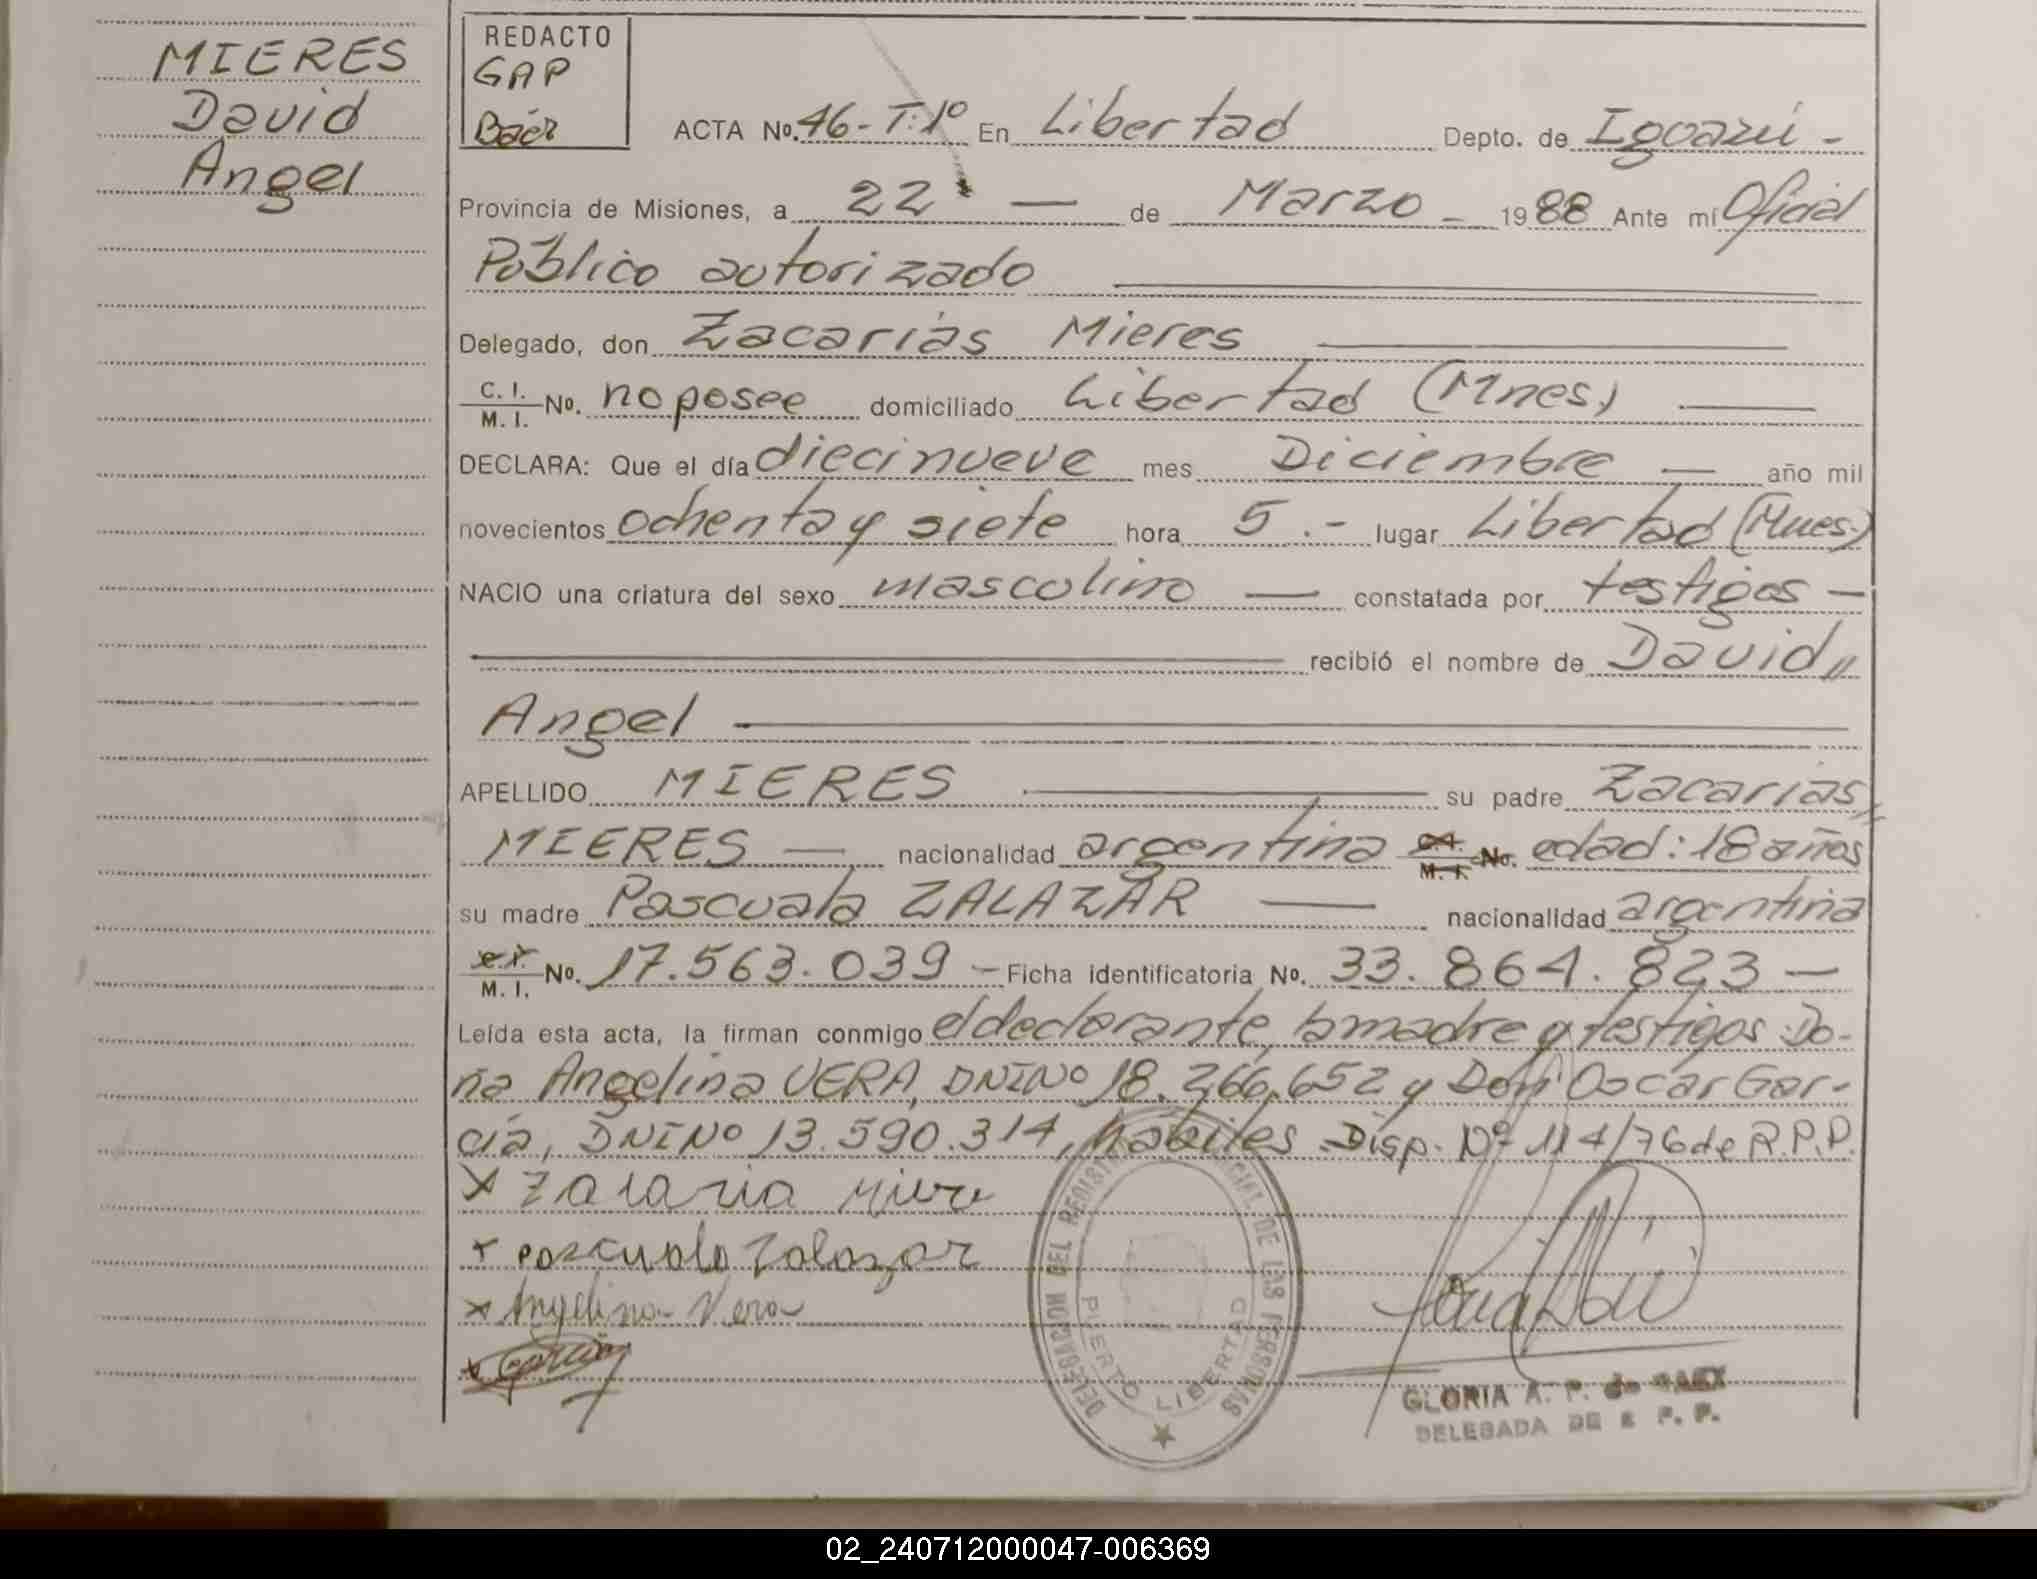 MIERES
David
Angel
REDACTO
GAP
Báez
ACTA No. 46-T:1º En Libertad Depto. de Iguazú -
Provincia de Misiones, a 22 — de Marzo - 1988 Ante mí Oficial
Público autorizado
Delegado, don Zacarías Mieres
C. I.
M. I. No. no posee domiciliado Libertad (Mnes)
DECLARA: Que el día diecinueve mes Diciembre — año mil
novecientos ochenta y siete hora 5.- lugar Libertad (Mnes)
NACIO una criatura del sexo masculino — constatada por testigos —
recibió el nombre de David,,
Angel
APELLIDO MIERES su padre Zacarías
MIERES — nacionalidad argentina C.I. M. I. No. edad: 18 años
su madre Pascuala ZALAZAR — nacionalidad argentina
C.I. M. I. No. 17.563.039 — Ficha identificatoria No. 33.864.823 —
Leída esta acta, la firman conmigo el declarante, la madre y testigos: Do-
ña Angelina VERA, DNI Nº 18.266.652 y Don Oscar Gar-
cía, DNI Nº 13.590.314, hábiles. Disp. Nº 114/76 de R.P.P.
x Zacaria Miere
x Pascuala Zalazar
x Angelina Vera
x García
DELEGACION DEL REGISTRO DE LAS PERSONAS
PUERTO LIBERTAD
GLORIA A. P. de BAEZ
DELEGADA DE R. P. P.
02_240712000047-006369